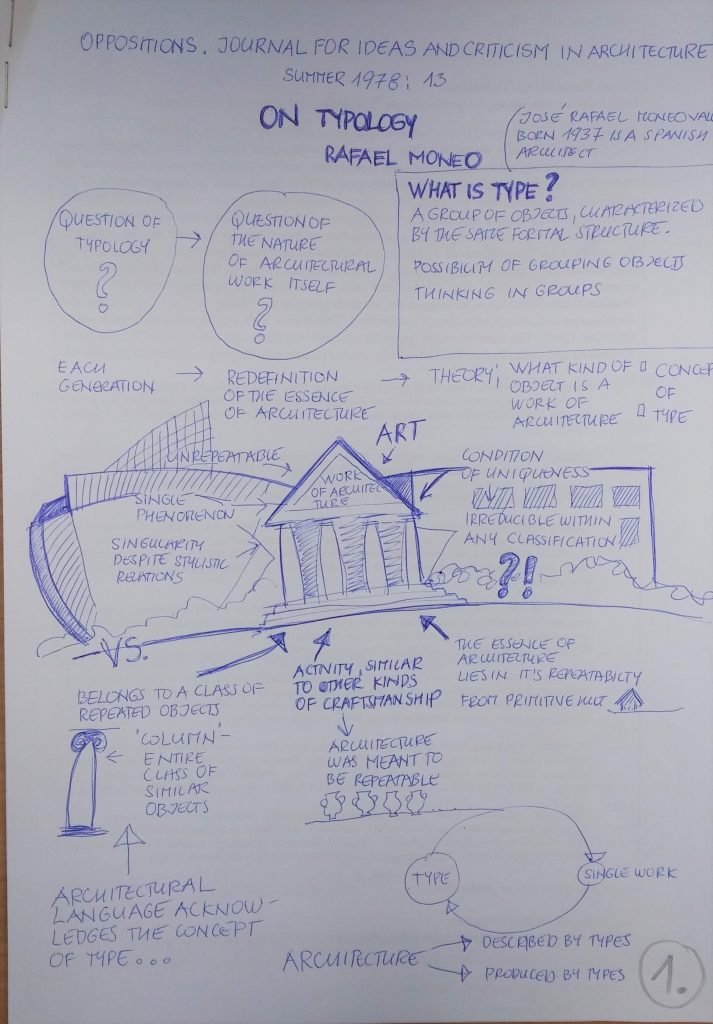 OPPOSITIONS. JOURNAL FOR IDEAS AND CRITICISM IN ARCHITECTURE
SUMMER 1978: 13
ON TYPOLOGY
RAFAEL MONEO
JOSÉ RAFAEL MONEO VAL
BORN 1937 IS A SPANISH
ARCHITECT
QUESTION OF
TYPOLOGY
?
QUESTION OF
THE NATURE
OF ARCHITECTURAL
WORK ITSELF
?
WHAT IS TYPE?
A GROUP OF OBJECTS, CHARACTERIZED
BY THE SAME FORMAL STRUCTURE.
POSSIBILITY OF GROUPING OBJECTS
THINKING IN GROUPS
EACH
GENERATION
REDEFINITION
OF THE ESSENCE
OF ARCHITECTURE
THEORY:
WHAT KIND OF
OBJECT IS A
WORK OF
ARCHITECTURE
CONCEP
OF
TYPE
UNREPEATABLE
SINGLE
PHENOMENON
SINGULARITY
DESPITE STYLISTIC
RELATIONS
ART
WORK
OF ARCHITEC
TURE
CONDITION
OF UNIQUENESS
IRREDUCIBLE WITHIN
ANY CLASSIFICATION
?!
VS.
BELONGS TO A CLASS OF
REPEATED OBJECTS
ACTIVITY, SIMILAR
TO OTHER KINDS
OF CRAFTSMANSHIP
THE ESSENCE OF
ARCHITECTURE
LIES IN IT'S REPEATABILTY
FROM PRIMITIVE HUT
'COLUMN'-
ENTIRE
CLASS OF
SIMILAR
OBJECTS
ARCHITECTURE
WAS MEANT TO
BE REPEATABLE
ARCHITECTURAL
LANGUAGE ACKNOW-
LEDGES THE CONCEPT
OF TYPE...
TYPE
SINGLE WORK
ARCHITECTURE
DESCRIBED BY TYPES
PRODUCED BY TYPES
1.